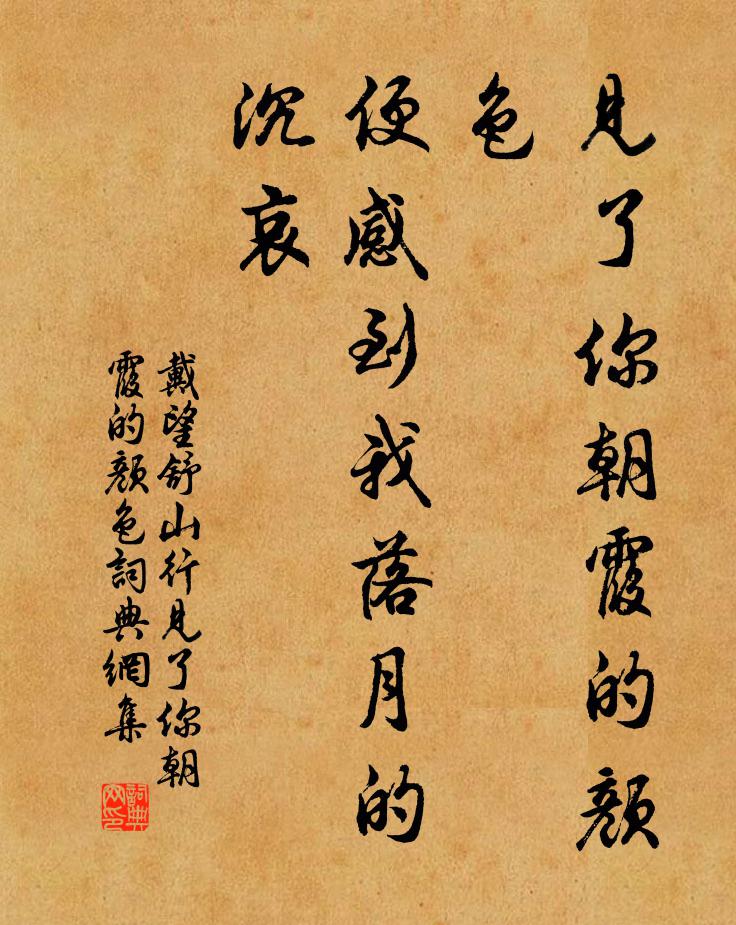 見了你朝霞的顏
色
便感到我落月的
沉哀
戴望舒山行見了你朝
霞的顏色詞典網集
詞典
网印